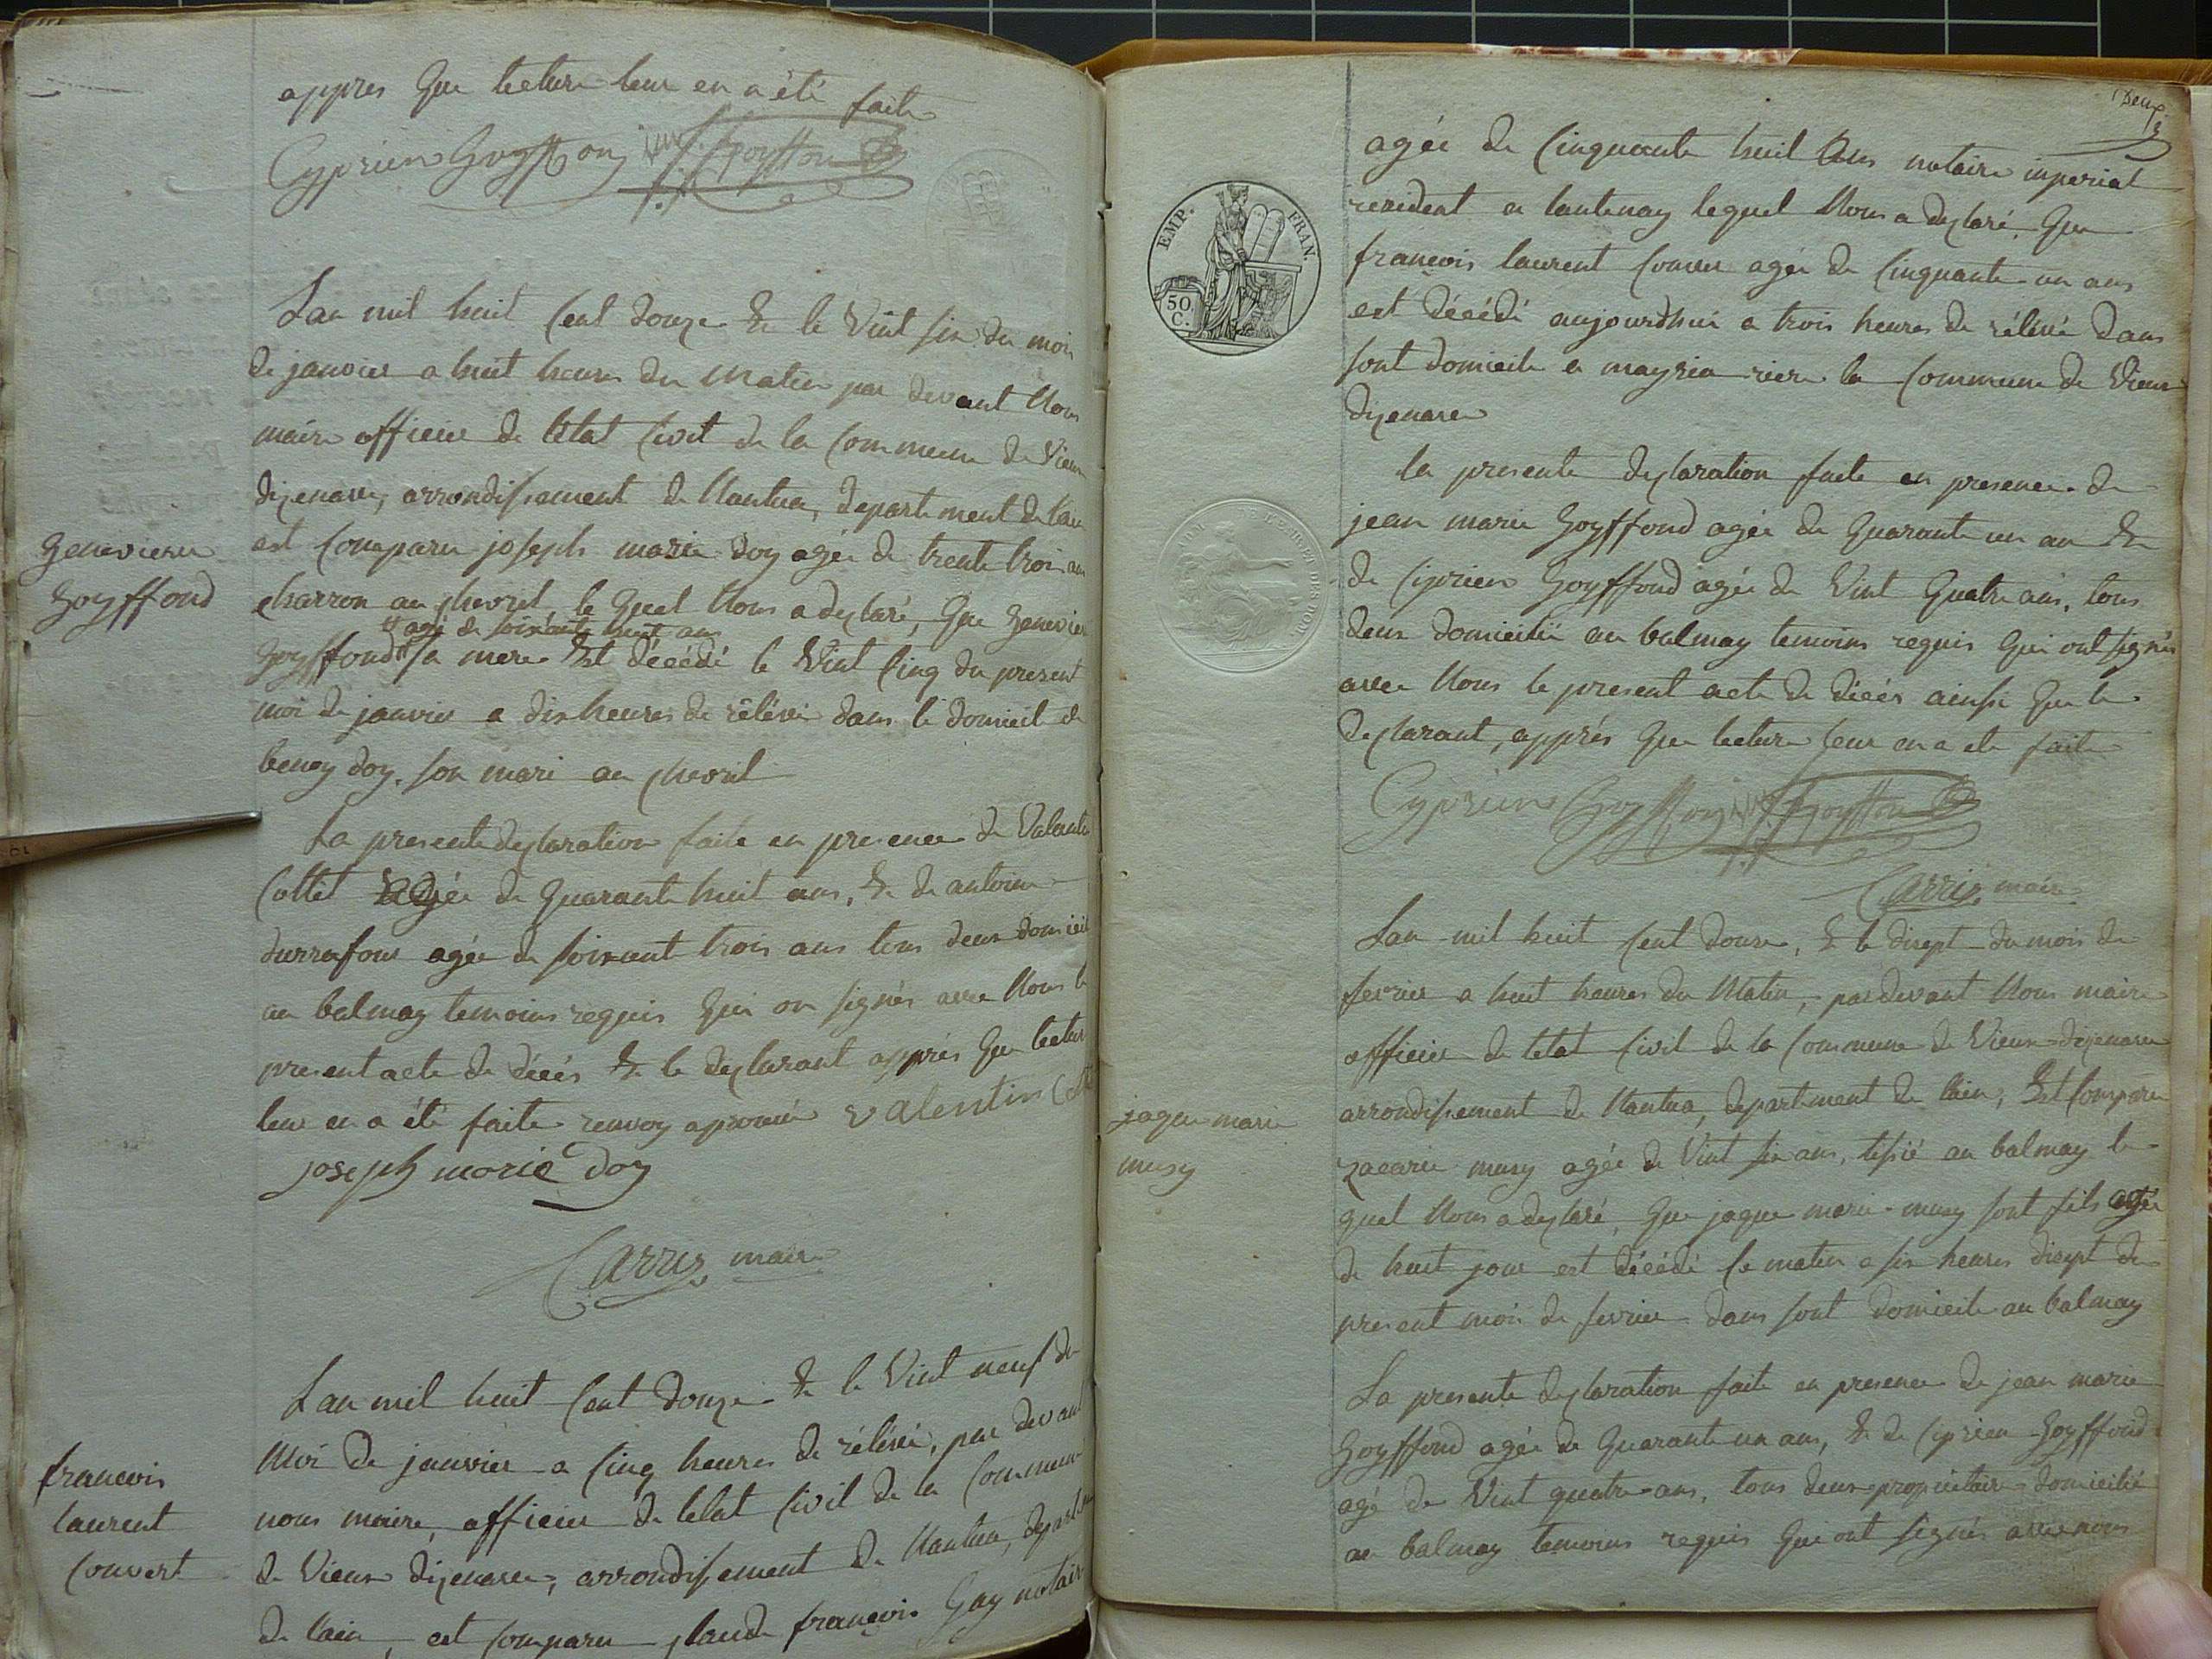 appres que lecture leur en a été faite
Cyprien Goyffon J M Goyffon
Lan mil huit cent douze & le vint six du moi
de janvier a huit heures du matin par devant nous
maire officier de létat civil de la commune de vieux
dizenave, arrondissement de nantua, departement de lain
Genevieve
Goyffond
est comparu joseph marie doy agée de trente trois ans
charron au chevril, le quel nous a declaré, que geneviev
agé de soixante huit ans
goyffond sa mere est décédé le vint cinq du present
moi de janvier a dix heures de rélévé dans le domicil de
benoy doy son mari au chevril
La presente declaration faite en presence de valentin
Collet agée de quarante huit ans, & de antoine
durrafour agée de soixant trois ans tous deux domicili
au balmay temoins requis qui on signés avec nous le
present acte de décés & le declarant apprés que lectur
leur en a été faite renvoy aprouvé valentin
joseph marie doy
Carrier maire
francois
laurent
Convert
Lan mil huit cent douze & le vint neuf du
moi de janvier a cinq heures de rélévé, par devant
nous maire, officier de letat civil de la commun
de vieux dizenave, arrondissement de nantua, departem
de lain, est comparu claude françois Gay notair
Deux
agée de cinquante huit ans notaire imperial
resident a lantenay lequel nous a declaré que
françois laurent Conver agée de cinquante un ans
est décédé aujourdhui a trois heures de rélévé dans
sont domicile a mayria riere la commune de vieux
dizenave
EMP. FRAN.
50 C.
la presente declaration faite en presence de
jean marie Goyffond agée de quarante un an &
de ciprien Goyffond agée de vint quatre ans, tous
deux domicilié au balmay temoins requis qui ont signés
avec nous le present acte de décés ainsi que le
declarant, apprés que lecture leur en a été faite
Cyprien Goyffon J M Goyffon
Carrier maire
Lan mil huit cent douze, & le disept du mois de
fevrier a huit heures du matin, par devant nous maire
officier de létat civil de la commune de vieux dizenave
arrondissement de nantua, departement de lain, est comparu
jaque marie
musy
zacarie musy agée de vint six ans, tissié au balmay le
quel nous a declaré, que jaque marie musy sont fils agée
de huit jour est décédé ce matin a six heures disept du
present moi de fevrier dans sont domicile au balmay
La presente declaration faite en presence de jean marie
Goyffond agée de quarante un ans, & de ciprien Goyffond
agé de vint quatre ans, tous deux propriétaire domicilié
au balmay temoins requis qui ont signés avec nous